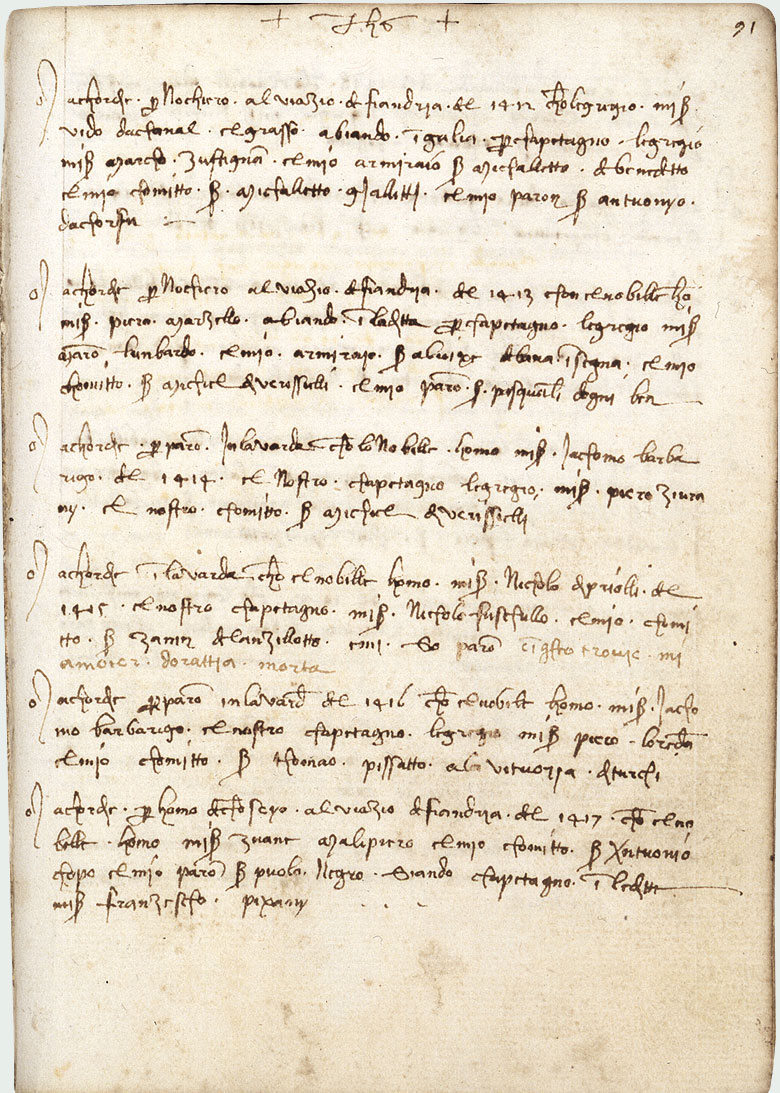 + Jhs + 91
achorde · per Nochiero · al viazio · de fiandria · del 1412 cho legregio · miser
vido dachanal · el grasso · abiando · i galia · per chapetagno · legregio
miser marcho · zustignan · el mio armiraio ser michalletto · de benedetto
el mio chomitto · ser · michalletto · el mio paron ser antuonyo ·
dachorfu
achorde per Nochiero al viazio · de fiandria · del 1413 chon el nobille homo
miser · piero · marzello · abiando · i la ditta per chapetagno · legregio miser
maro lunbardo · el mio · armiraio · ser aluixe · el mio
chomitto · ser michiel de verissielli · el mio paro · ser · degni ben
achorde · per paro · in la varda cho lo Nobille · homo miser · Jachomo barba
rigo · del 1414 · el Nostro · chapetagno legregio, miser · piero ziura
ny · el nostro · chomitto · ser michiel de verissielli
achorde i la varda cho el nobille homo · miser · Nicholo de priolli · del
1415 · el nostro chapetagno · miser · Nicholo fuschullo · el mio · chomi
tto · ser zanin de lanzillotto · so paro trovie · mi
amoier · dorattia · morta
achorde per paro in la varda del 1416 cho el nobile homo · miser · Jacho
mo barbarigo · el nostro chapetagno · legregio miser piero · loredan
el mio chomitto · ser pissatto · a la vituoria · de turchi
achorde · per homo de chonseyo · al viazio de fiandria · del 1417 · cho el no
bille · homo miser zuane malipiero el mio chomitto · ser Antuonio
el mio paro ser puolo · Negro · siando chapetagno · i le ditte
miser franzescho · pixany